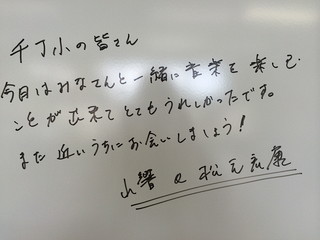 千丁小の皆さん
今日はみなさんと一緒に音楽を楽しむ
ことが出来てとてもうれしかったです。
また近いうちにお会いしましょう！
山響